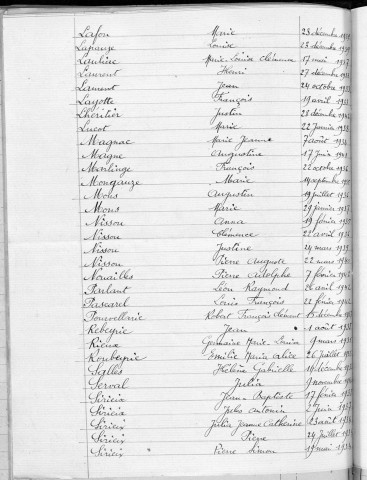 Lafon Marie 23 décembre
Lapauze Louise 23 décembre
Laulière Marie-Louise Clémence 17 mai 1937
Laurent Henri 27 décembre
Laurent Jean 24 octobre
Layotte François 19 avril
Lhéritier Justin 28 décembre
Lucot Marie 22 janvier
Magnac Marie Jeanne 7 août
Magne Augustine 17 juin
Martinge François 22 octobre
Mongauze Marie septembre
Mons Augustin 19 juillet
Mons Marie 29 janvier
Nisson Anna 19 février
Nisson Clémence 22 avril
Nisson Justine 24 mars
Nisson Pierre Auguste 22 mars
Nouailles Pierre Adolphe 7 février
Parlant Léon Raymond 26 avril
Pascarel Louis François 22 février
Pourvellerie Robert François Clément décembre
Rebeyrie Jean 1 août
Rieux Germaine Marie-Louise 9 mars
Roubeyrie Emilie Marie Alice 26 juillet
Salles Hélène Gabrielle 19 décembre
Serval Julia 9 novembre
Sirieix Jean-Baptiste 17 février
Sirieix Jules Antonin 2 juin
Sirieix Julia Jeanne Catherine 23 août
Sirieix Pierre 24 juillet
Sirieix Pierre Simon 19 mai